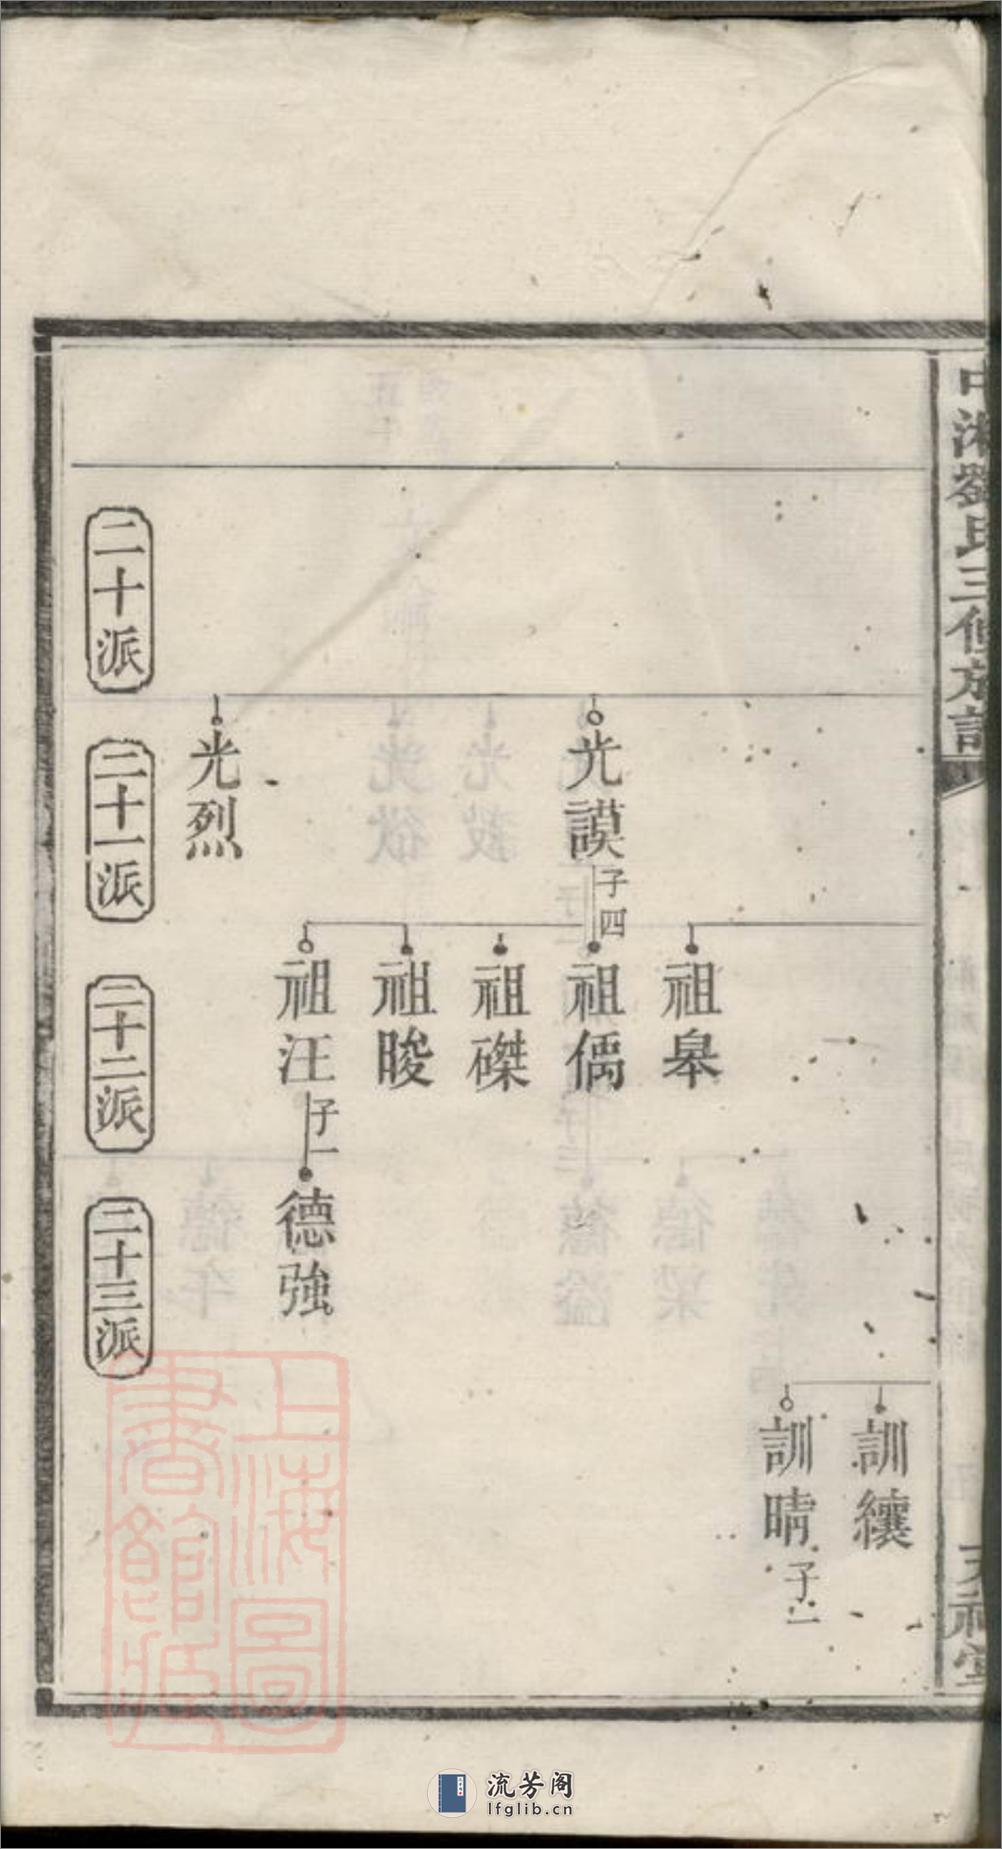 中湘劉氏三修族譜
訓纕
訓晴
子一
祖皋
光謨
子四
祖偊
祖磔
祖晙
祖汪
子一
德強
光烈
二十派
二十一派
二十二派
二十三派
上海圖書館藏
流芳阁
lfglib.cn